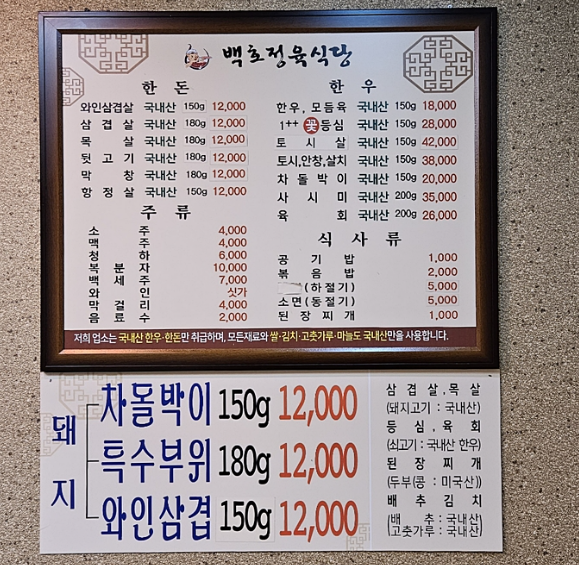 백호정육식당
한돈
와인삼겹살 국내산 150g 12,000
삼겹살 국내산 180g 12,000
목살 국내산 180g 12,000
뒷고기 국내산 180g 12,000
막창 국내산 180g 12,000
항정살 국내산 150g 12,000
주류
소주 4,000
맥주 4,000
청하 6,000
복분자 10,000
백세주 7,000
와인 싯가
막걸리 4,000
음료수 2,000
한우
한우, 모듬육 국내산 150g 18,000
1++ 꽃등심 국내산 150g 28,000
토시살 국내산 150g 42,000
토시,안창,살치 국내산 150g 38,000
차돌박이 국내산 150g 20,000
사시미 국내산 200g 35,000
육회 국내산 200g 26,000
식사류
공기밥 1,000
볶음밥 2,000
(하절기) 5,000
소면(동절기) 5,000
된장찌개 1,000
저희 업소는 국내산 한우·한돈만 취급하며, 모든재료와 쌀·김치·고춧가루·마늘도 국내산만을 사용합니다.
돼지
차돌박이 150g 12,000
특수부위 180g 12,000
와인삼겹 150g 12,000
삼겹살,목살
(돼지고기 : 국내산)
등심,육회
(쇠고기 : 국내산 한우)
된장찌개
(두부(콩 : 미국산))
배추김치
(배추 : 국내산)
(고춧가루 : 국내산)